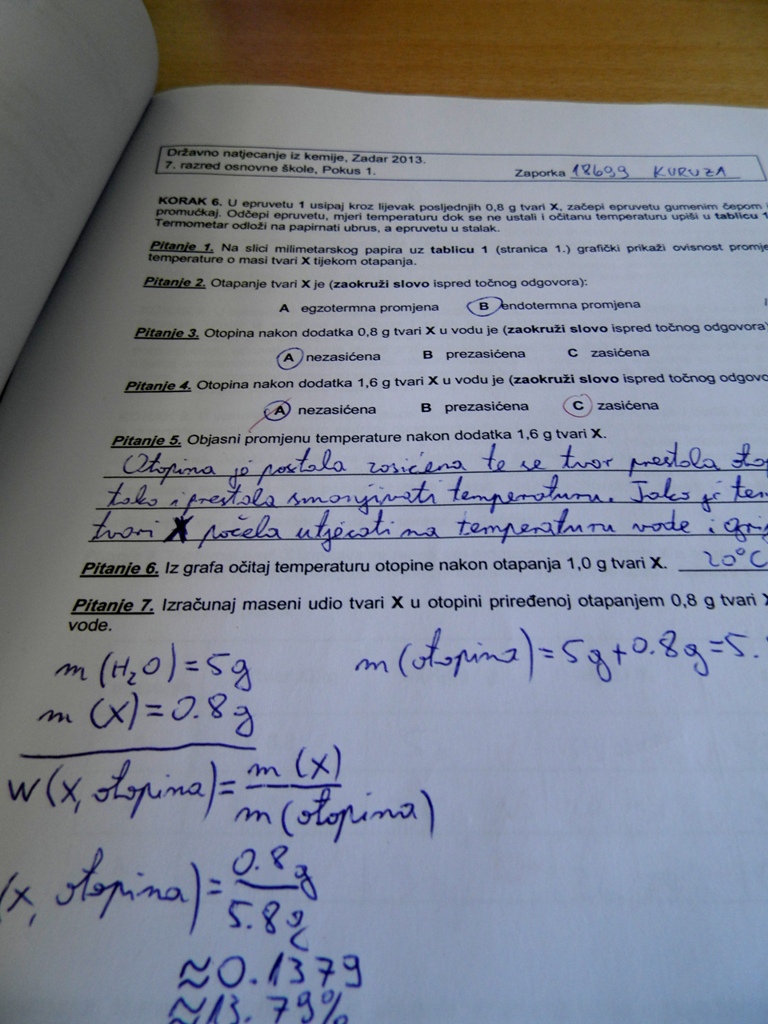 Državno natjecanje iz kemije, Zadar 2013.
7. razred osnovne škole, Pokus 1.
Zaporka 18699 KURUZA
KORAK 6. U epruvetu 1 usipaj kroz lijevak posljednjih 0,8 g tvari X, začepi epruvetu gumenim čepom
promućkaj. Odčepi epruvetu, mjeri temperaturu dok se ne ustali i očitanu temperaturu upiši u tablicu 1
Termometar odloži na papirnati ubrus, a epruvetu u stalak.
Pitanje 1. Na slici milimetarskog papira uz tablicu 1 (stranica 1.) grafički prikaži ovisnost
temperature o masi tvari X tijekom otapanja.
Pitanje 2. Otapanje tvari X je (zaokruži slovo ispred točnog odgovora):
A egzotermna promjena B endotermna promjena
Pitanje 3. Otopina nakon dodatka 0,8 g tvari X u vodu je (zaokruži slovo ispred točnog odgovora)
A nezasićena B prezasićena C zasićena
Pitanje 4. Otopina nakon dodatka 1,6 g tvari X u vodu je (zaokruži slovo ispred točnog
A nezasićena B prezasićena C zasićena
Pitanje 5. Objasni promjenu temperature nakon dodatka 1,6 g tvari X.
Otopina je postala zasićena te se tvar prestala
tako i prestala smanjivati temperaturu. Tako je
tvari X počela utjecati na temperaturu vode i
Pitanje 6. Iz grafa očitaj temperaturu otopine nakon otapanja 1,0 g tvari X. 20°C
Pitanje 7. Izračunaj maseni udio tvari X u otopini priređenoj otapanjem 0,8 g tvari
vode.
m (H₂O) = 5g m (otopina) = 5g + 0.8g = 5.
m (X) = 0.8g
w (X, otopina) = m (X) / m (otopina)
(X, otopina) = 0.8g / 5.8g
≈ 0.1379
≈ 13.79%